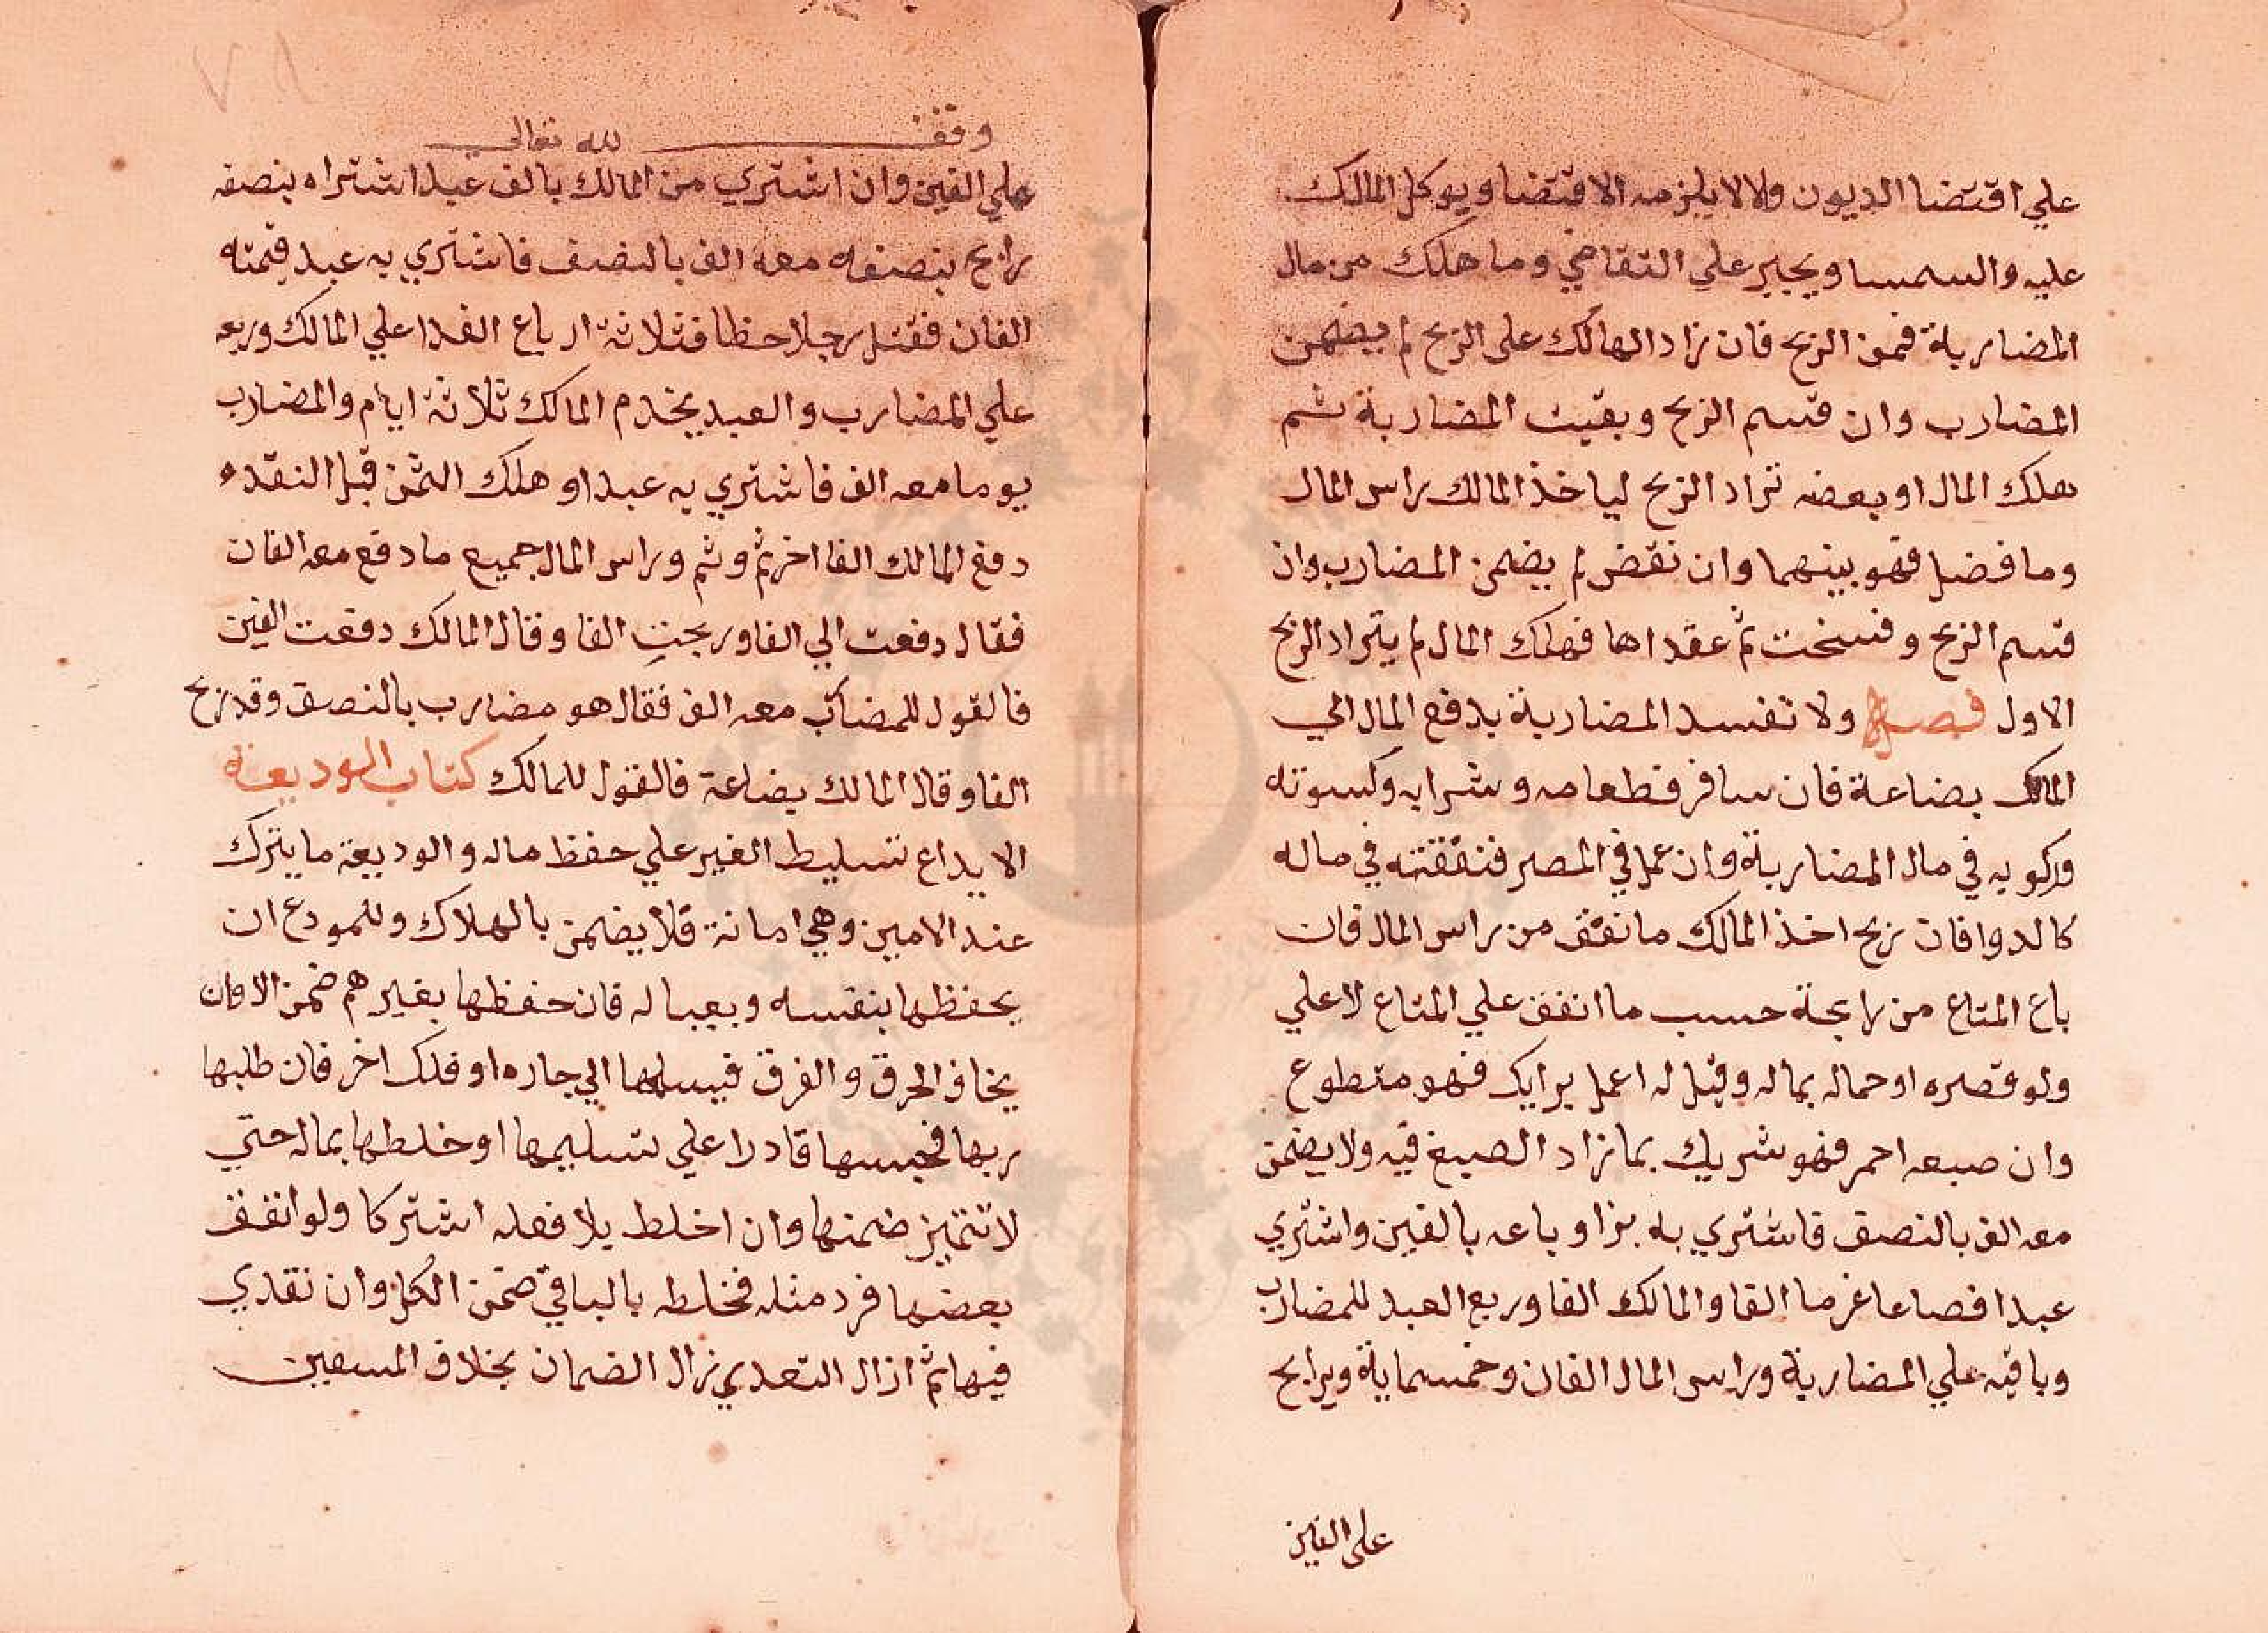 علي اقتضا الديون ولا لا يلزمه الاقتضا ويوكل المالك
عليه والسمسا ويجبر علي التقاضي وما هلك من مال
المضاربة فمن الربح فان زاد الهالك على الربح لم يضمن
المضارب وان قسم الربح وبقيت المضاربة ثم
هلك المال او بعضه تراد الربح لياخذ المالك راس المال
وما فضل فهو بينهما وان نقض لم يضمن المضارب وان
قسم الربح وفسخت ثم عقداها فهلك المال لم يتراد الربح
الاول فصل ولا تفسد المضاربة بدفع المال الي
المالك بضاعة فان سافر فطعامه وشرابه وكسوته
وركوبه في مال المضاربة وان عمل في المصر فنفقته في ماله
كالدوا فان ربح اخذ المالك ما نفق من راس المال فان
باع المتاع من رابحة حسب ما انفق علي المتاع لا علي
ولو قصره او حماله بماله وقيل له اعمل برايك فهو متطوع
وان صبعه احمر فهو شريك بما زاد الصبغ فيه ولا يضمن
معه الف بالنصف فاشتري به بزا وباعه بالفين واشتري
عبدا فضاعا غرما الفا والمالك الفا وربع العبد للمضارب
وباقيه علي المضاربة وراس المال الفان وخمسماية ويرابح
على الفين
وقف لله تعالى
علي الفين وان اشتري من المالك بالف عبدا اشتراه بنصفه
رابح بنصفه معه الف بالنصف فاشتري به عبد قيمته
الفان فقتل رجلا خطا فثلاثة ارباع الفدا علي المالك وربعه
علي المضارب والعبد يخدم المالك ثلاثة ايام والمضارب
يوما معه الف فاشتري به عبدا وهلك الثمن قبل النقد
دفع المالك الفا اخر ثم وثم وراس المال جميع ما دفع معه الفان
فقال دفعت الي الفا وربحت الفا وقال المالك دفعت الفين
فالقول للمضارب معه الف فقال هو مضارب بالنصف وقد ربح
الفا وقال المالك بضاعة فالقول للمالك كتاب الوديعة
الايداع تسليط الغير علي حفظ ماله والوديعة ما يترك
عند الامين وهي امانة فلا يضمن بالهلاك وللمودع ان
يحفظها بنفسه وبعياله فان حفظها بغيرهم ضمن الا وان
يخاف الحرق والغرق فيسلمها الي جاره او فلك اخر فان طلبها
ربها فحبسها قادرا علي تسليمها او خلطها بماله حتي
لا تتميز ضمنها وان اخلط بلا فعله اشتركا ولو انفق
بعضها فرد مثله فخلطه بالباقي ضمن الكل وان تقدي
فيها ثم ازال التعدي زال الضمان بخلاف المسعين